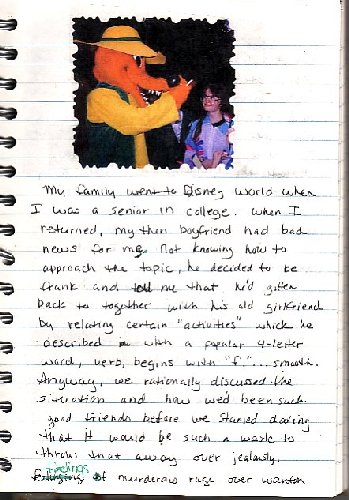 My family went to Disney World when
I was a senior in college. When I
returned, my then boyfriend had bad
news for me. Not knowing how to
approach the topic, he decided to be
frank and tell me that he'd gotten
back to together with his old girlfriend
by relating certain "activities" which he
described with a popular 4-letter
word, verb, begins with "f."... smooth.
Anyway, we rationally discussed the
situation and how we'd been such
good friends before we started dating
that it would be such a waste to
throw that away over jealousy.
feelings
of murderous rage over wanton